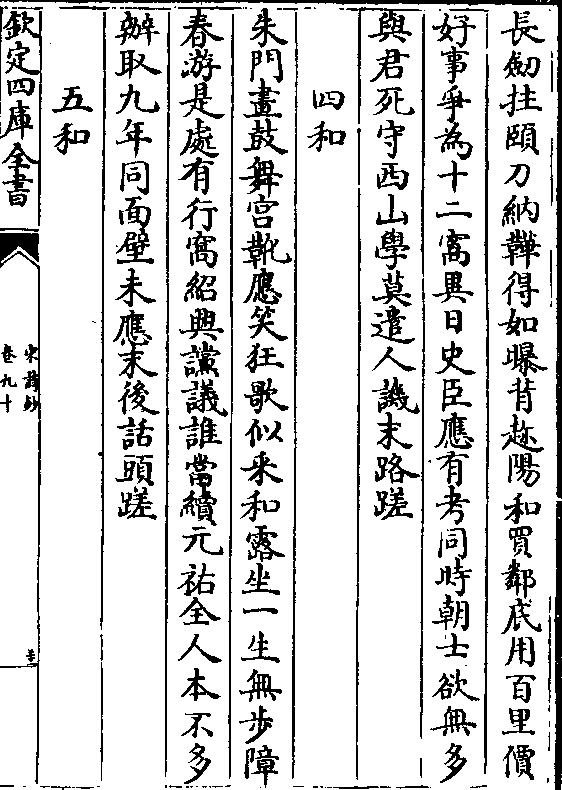 長劒拄頤刀納鞾得如曝背趂陽和買鄰底用百里價
好事爭為十二窩異日史臣應有考同時朝士欲無多
與君死守西山學莫遣人譏末路蹉
四和
朱門畫鼓舞宮靴應笑狂歌似采和露坐一生無歩障
春游是處有行窩紹興讜議誰當續元祐全人本不多
辦取九年同面壁未應末後話頭蹉
五和
欽定四庫全書
宋詩鈔
卷九十